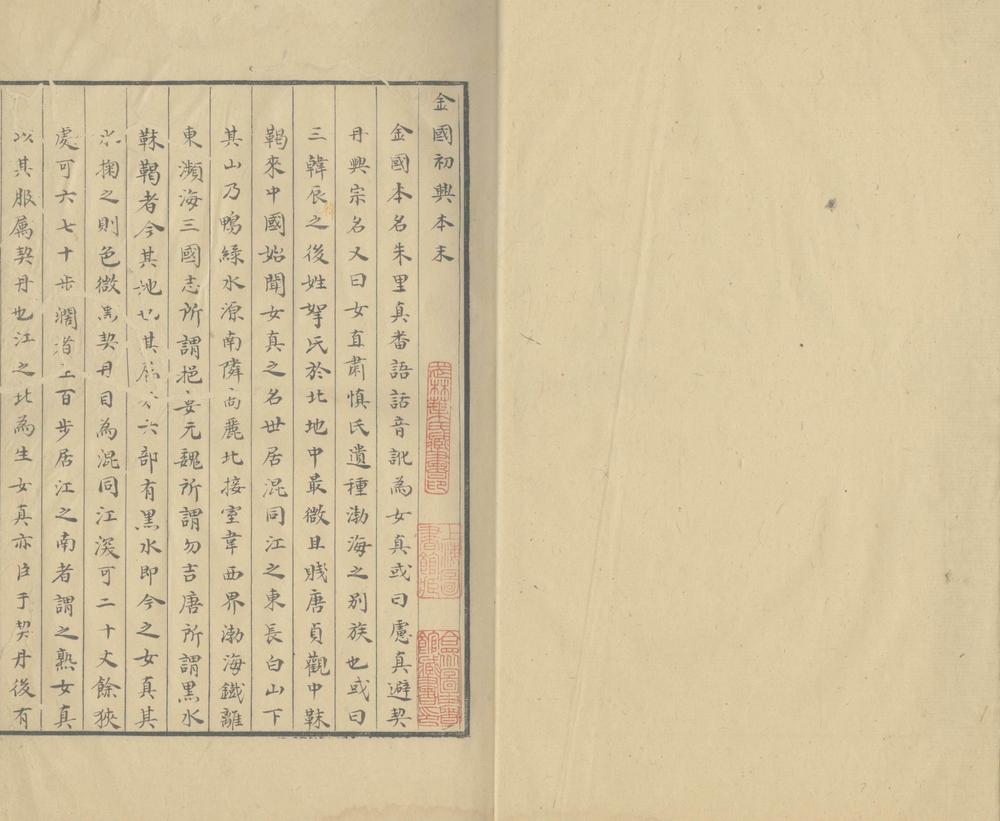 金國初興本末
金國本名朱里真番語話音訛為女真或曰慮真避契
丹興宗名又曰女直肅慎氏遺種渤海之別族也或曰
三韓辰之後姓拏氏於北地中最微且賤唐貞觀中靺
鞨來中國始聞女真之名世居混同江之東長白山下
其山乃鴨綠水源南隣高麗北接室韋西界渤海鐵離
東瀕海三國志所謂挹婁元魏所謂勿吉唐所謂黑水
靺鞨者今其地也其屬分六部有黑水即今之女真其
水掬之則色微黑契丹目為混同江深可二十丈餘狹
處可六七十步濶者至百步居江之南者謂之熟女真
以其服属契丹也江之北為生女真亦臣于契丹後有
武林葉氏藏書印
上海圖書館藏
合眾圖書館藏書印